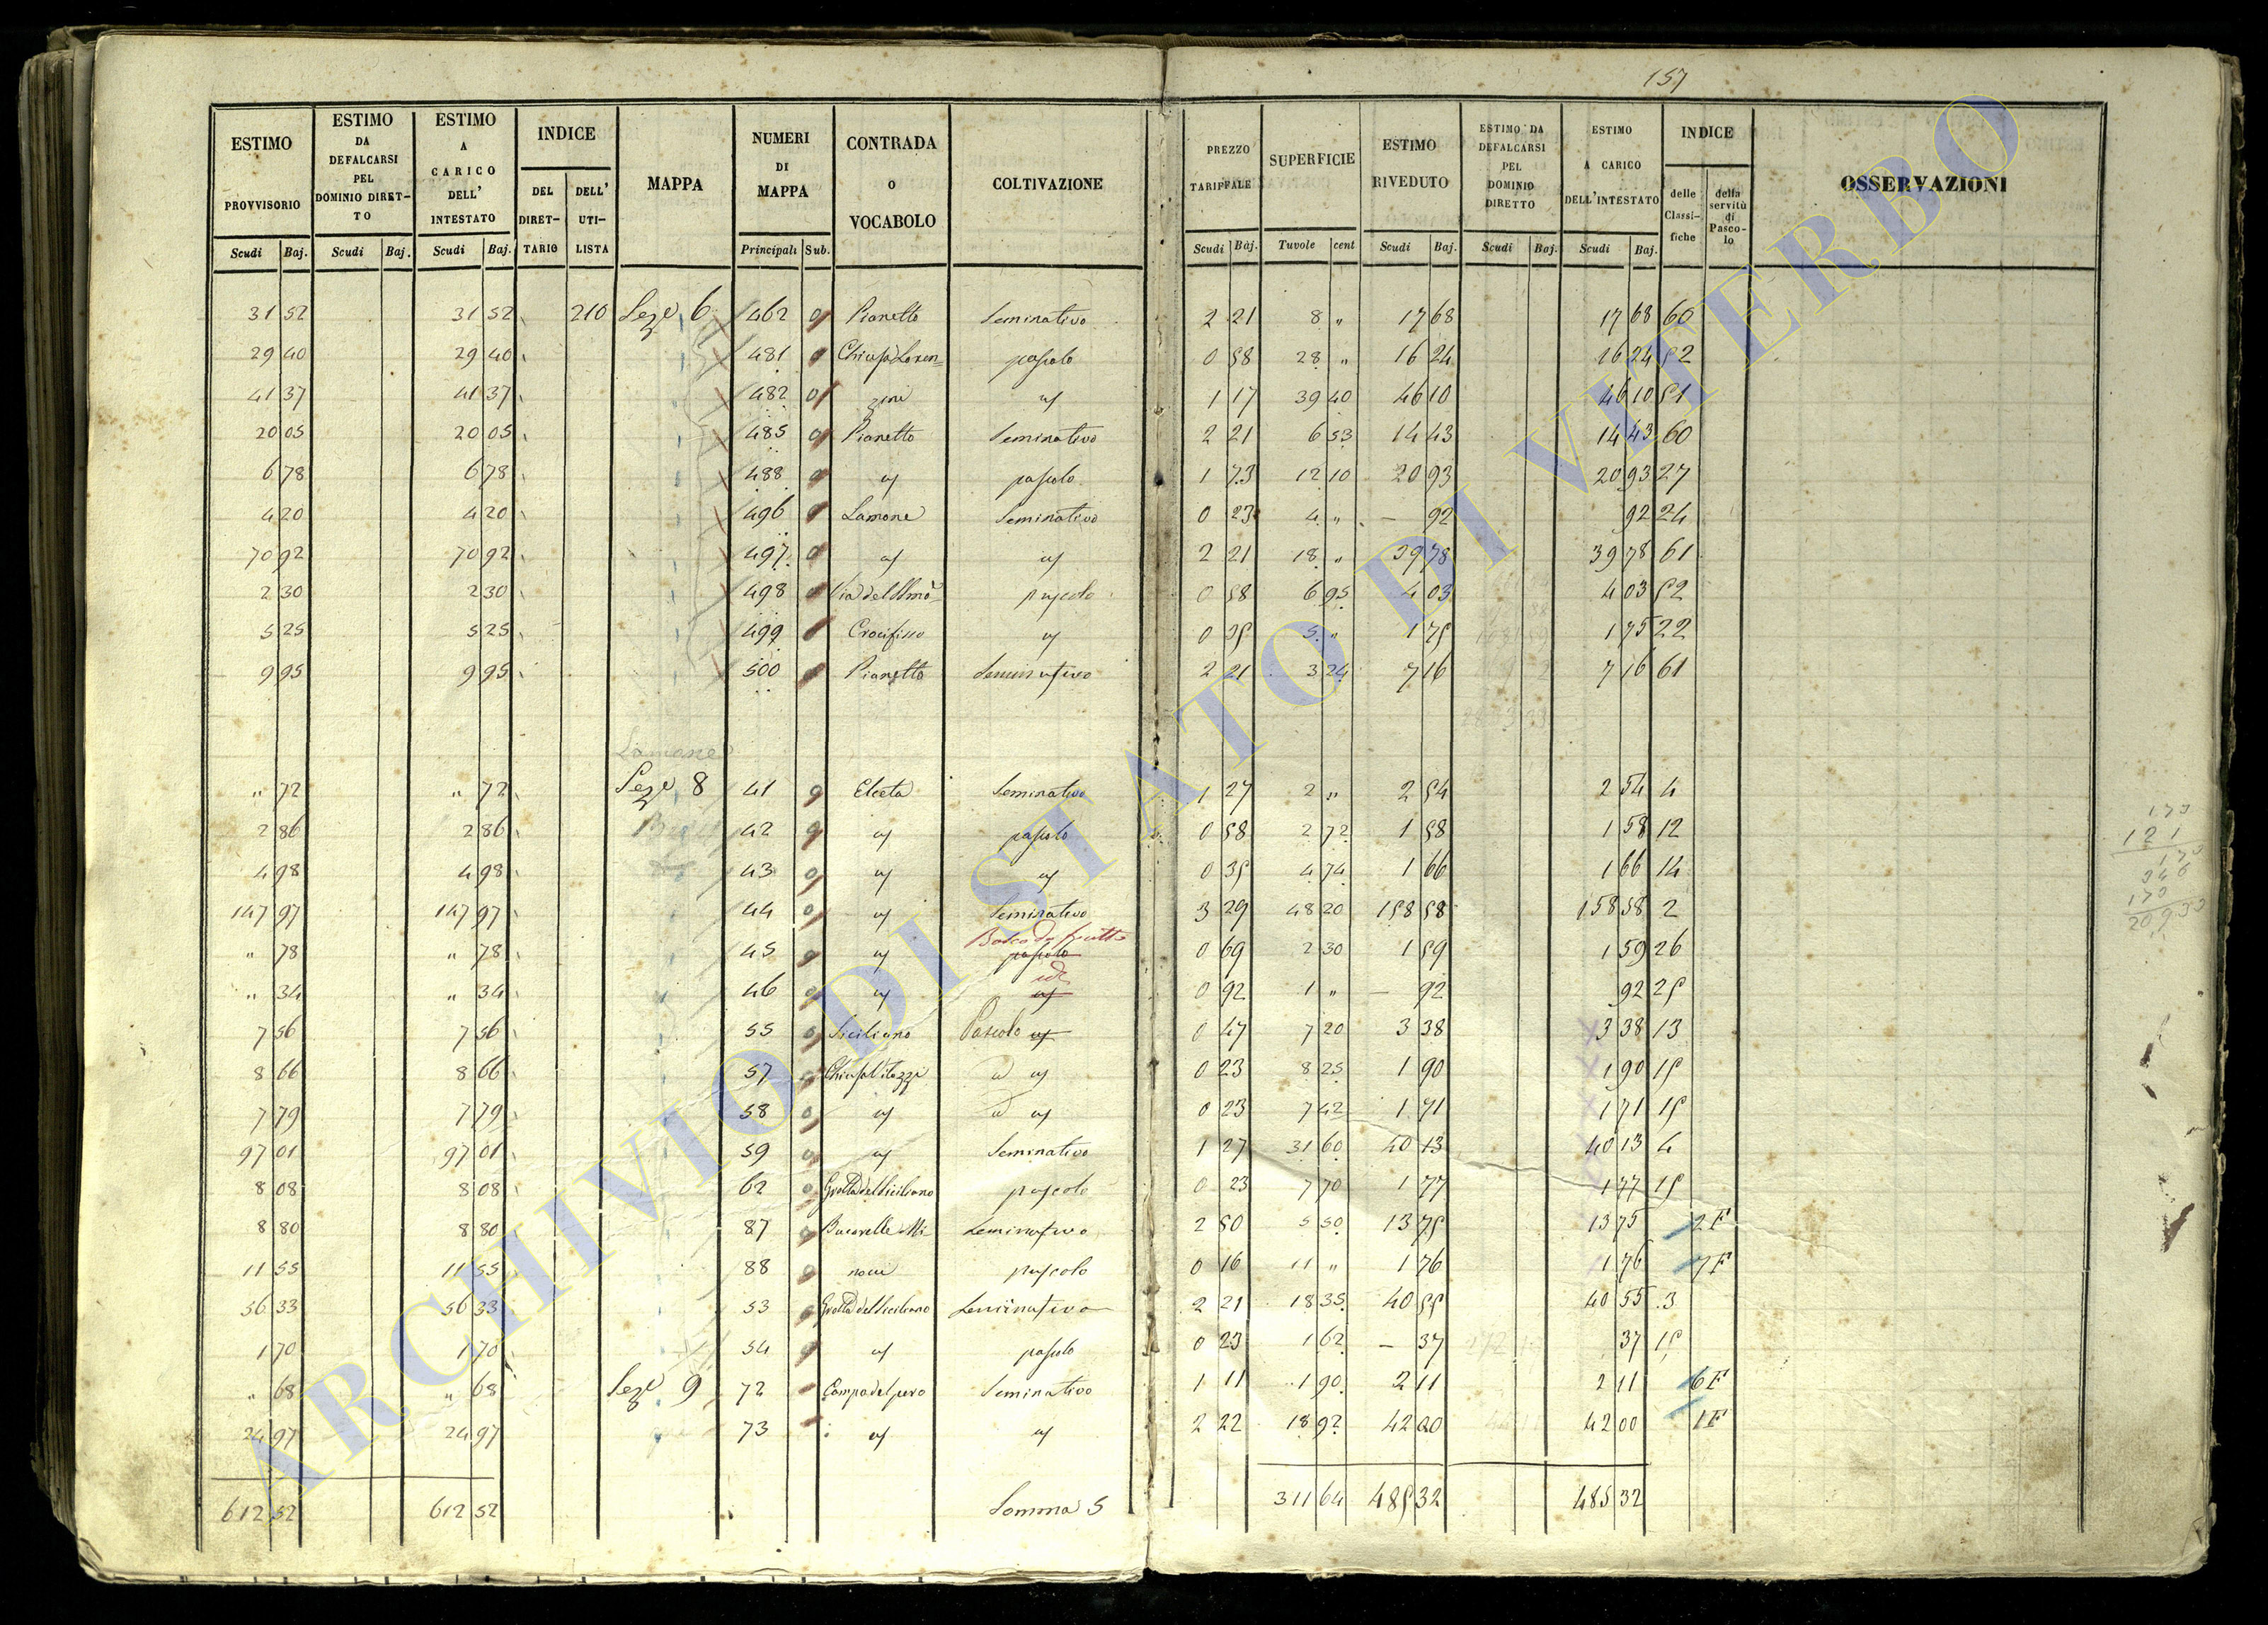 157
ESTIMO PROVVISORIO | ESTIMO DA DEFALCARSI PEL DOMINIO DIRETTO | ESTIMO A CARICO DELL' INTESTATO | INDICE DEL DIRETTARIO | DELL' UTILISTA | MAPPA | NUMERI DI MAPPA | CONTRADA O VOCABOLO | COLTIVAZIONE | PREZZO TARIFFALE | SUPERFICIE | ESTIMO RIVEDUTO | ESTIMO DA DEFALCARSI PEL DOMINIO DIRETTO | ESTIMO A CARICO DELL'INTESTATO | INDICE delle Classifiche | della servitù di Pascolo | OSSERVAZIONI
Scudi Baj. | Scudi Baj. | Scudi Baj. | Principali Sub. | Scudi Baj. | Tavole cent | Scudi Baj. | Scudi Baj. | Scudi Baj.
31 52 | 31 52 | 210 | Seze 6 | 462 | 0 | Pianetto | Seminativo | 2 21 | 8 " | 17 68 | 17 68 | 60
29 40 | 29 40 | 481 | 0 | Chiusa Loren= | pascolo | 0 58 | 28 " | 16 24 | 16 24 | 52
41 37 | 41 37 | 482 | 0 | zini | " | 1 17 | 39 40 | 46 10 | 46 10 | 51
20 05 | 20 05 | 485 | 0 | Pianetto | Seminativo | 2 21 | 6 53 | 14 43 | 14 43 | 60
6 78 | 6 78 | 488 | 0 | " | pascolo | 1 73 | 12 10 | 20 93 | 20 93 | 27
4 20 | 4 20 | 496 | 0 | Lamone | Seminativo | 0 23 | 4 " | — 92 | 92 | 24
70 92 | 70 92 | 497 | 0 | " | " | 2 21 | 18 " | 39 78 | 39 78 | 61
2 30 | 2 30 | 498 | 0 | pascolo | 0 58 | 6 95 | 4 03 | 4 03 | 52
5 25 | 5 25 | 499 | 0 | Crocifisso | " | 0 35 | 5 " | 1 75 | 1 75 | 22
9 95 | 9 95 | 500 | 0 | Pianetto | Seminativo | 2 21 | 3 24 | 7 16 | 7 16 | 61
Lamone
" 72 | " 72 | Seze 8 | 41 | 0 | Elceta | Seminativo | 1 27 | 2 " | 2 54 | 2 54 | 4
2 86 | 2 86 | 42 | 0 | " | pascolo | 0 58 | 2 72 | 1 58 | 1 58 | 12
4 98 | 4 98 | 43 | 0 | " | " | 0 35 | 4 74 | 1 66 | 1 66 | 14
147 97 | 147 97 | 44 | 0 | " | Seminativo | 3 29 | 48 20 | 158 58 | 158 58 | 2
Bosco da frutto
" 78 | " 78 | 45 | 0 | " | pascolo | 0 69 | 2 30 | 1 59 | 1 59 | 26
" 34 | " 34 | 46 | 0 | " | " | 0 92 | 1 " | — 92 | 92 | 25
7 56 | 7 56 | 55 | 0 | Siciliano | Pascolo " | 0 47 | 7 20 | 3 38 | 3 38 | 13
8 66 | 8 66 | 57 | 0 | " | 0 23 | 8 25 | 1 90 | 1 90 | 15
7 79 | 7 79 | 58 | 0 | " | " | 0 23 | 7 42 | 1 71 | 1 71 | 15
97 01 | 97 01 | 59 | 0 | " | Seminativo | 1 27 | 31 60 | 40 13 | 40 13 | 4
8 08 | 8 08 | 62 | 0 | Grotta del Siciliano | pascolo | 0 23 | 7 70 | 1 77 | 1 77 | 15
8 80 | 8 80 | 87 | 0 | Seminativo | 2 50 | 5 50 | 13 75 | 13 75 | 2 F
11 55 | 11 55 | 88 | 0 | pascolo | 0 16 | 11 " | 1 76 | 1 76 | 7 F
56 33 | 56 33 | 53 | 0 | Grotta del Siciliano | Seminativo | 2 21 | 18 35 | 40 55 | 40 55 | 3
1 70 | 1 70 | 54 | 0 | " | pascolo | 0 23 | 1 62 | — 37 | 37 | 15
" 68 | " 68 | Seze 9 | 72 | Campo del pero | Seminativo | 1 11 | 1 90 | 2 11 | 2 11 | 6 F
24 97 | 24 97 | 73 | " | " | 2 22 | 18 92 | 42 00 | 42 00 | 1 F
612 52 | 612 52 | Somma S | 311 64 | 485 32 | 485 32
ARCHIVIO DI STATO DI VITERBO